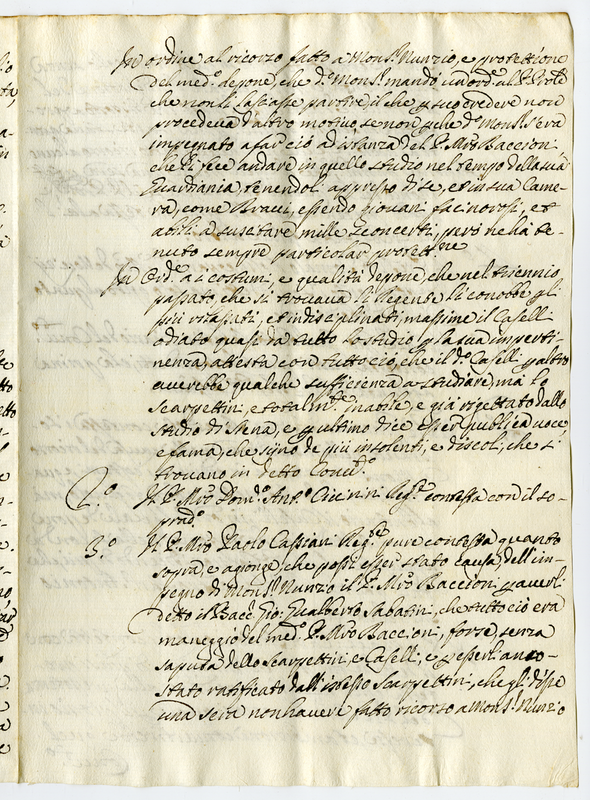 In ordine al ricorzo fatto a Mons.r Nunzio, e protettione
del med.o depone, che d.o Mons.r mandò un ord.e al P. Prote
che non li lasciasse partire, il che p suo credere non
procedeva d'altro motivo se non p che d.o Mons.r s'era
impegnato a far ciò ad istanza del P. Mro Baccioni
che li fece andare in quello studio nel tempo della sua
Guardiania, tenendoli appresso di se, et in sua Came-
ra, come Bravi, essendo giovani facinorosi, et
abili a suscitare mille sconcerti, però ne ha te-
nuto sempre particolar protett.ne
In Ord.e a i costumi, e qualità depone, che nel triennio
passato, che si trovava li Regente li conobbe p li
più rilasciati, et indisciplinati, massime il Caselli
odiato quasi da tutto lo studio p la sua imperti-
nenza, attesta con tutto ciò, che il d.o Caselli p altro
averebbe qualche sufficienza a studiare, ma lo
Scarpettini, è totalm.te inabile, e già rigettato dallo
studio di Siena, e p ultimo dice esser publica voce,
e fama, che siino de più insolenti, e discoli, che si
trovano in detto Conv.o
2.o Il P. Mro Dom.o Ant.o Ciccinini Reg.te contesta con il so-
prad.o
3.o Il P. Mro Paolo Cassiani Reg.te pure contesta quanto
sopra, e agionge, che possi esser stato causa dell'im-
pegno di Mons.r Nunzio il P. Mro Baccioni p averli
detto il Bacc. Gio. Gualberto Sabatini, che tutto ciò era
maneggio del med.o P. Mro Baccioni, forse, senza
saputa dello Scarpettini, e Caselli, e p esserli anco-
stato ratificato dall'istesso Scarpettini, che gli disse
una sera non haver fatto ricorso a Mons.r Nunzio